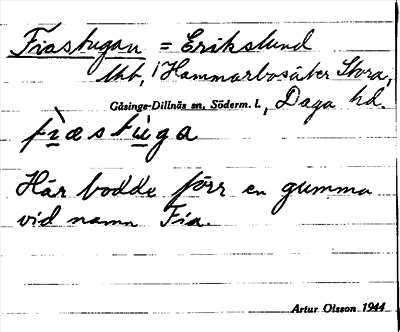 Fiastugan = Erikslund
lht, i Hammarbosäter Stora,
Gåsinge-Dillnäs sn, Söderm. l., Daga hd.
fìæstùga
Här bodde förr en gumma
vid namn Fia.
Artur Olsson 1944